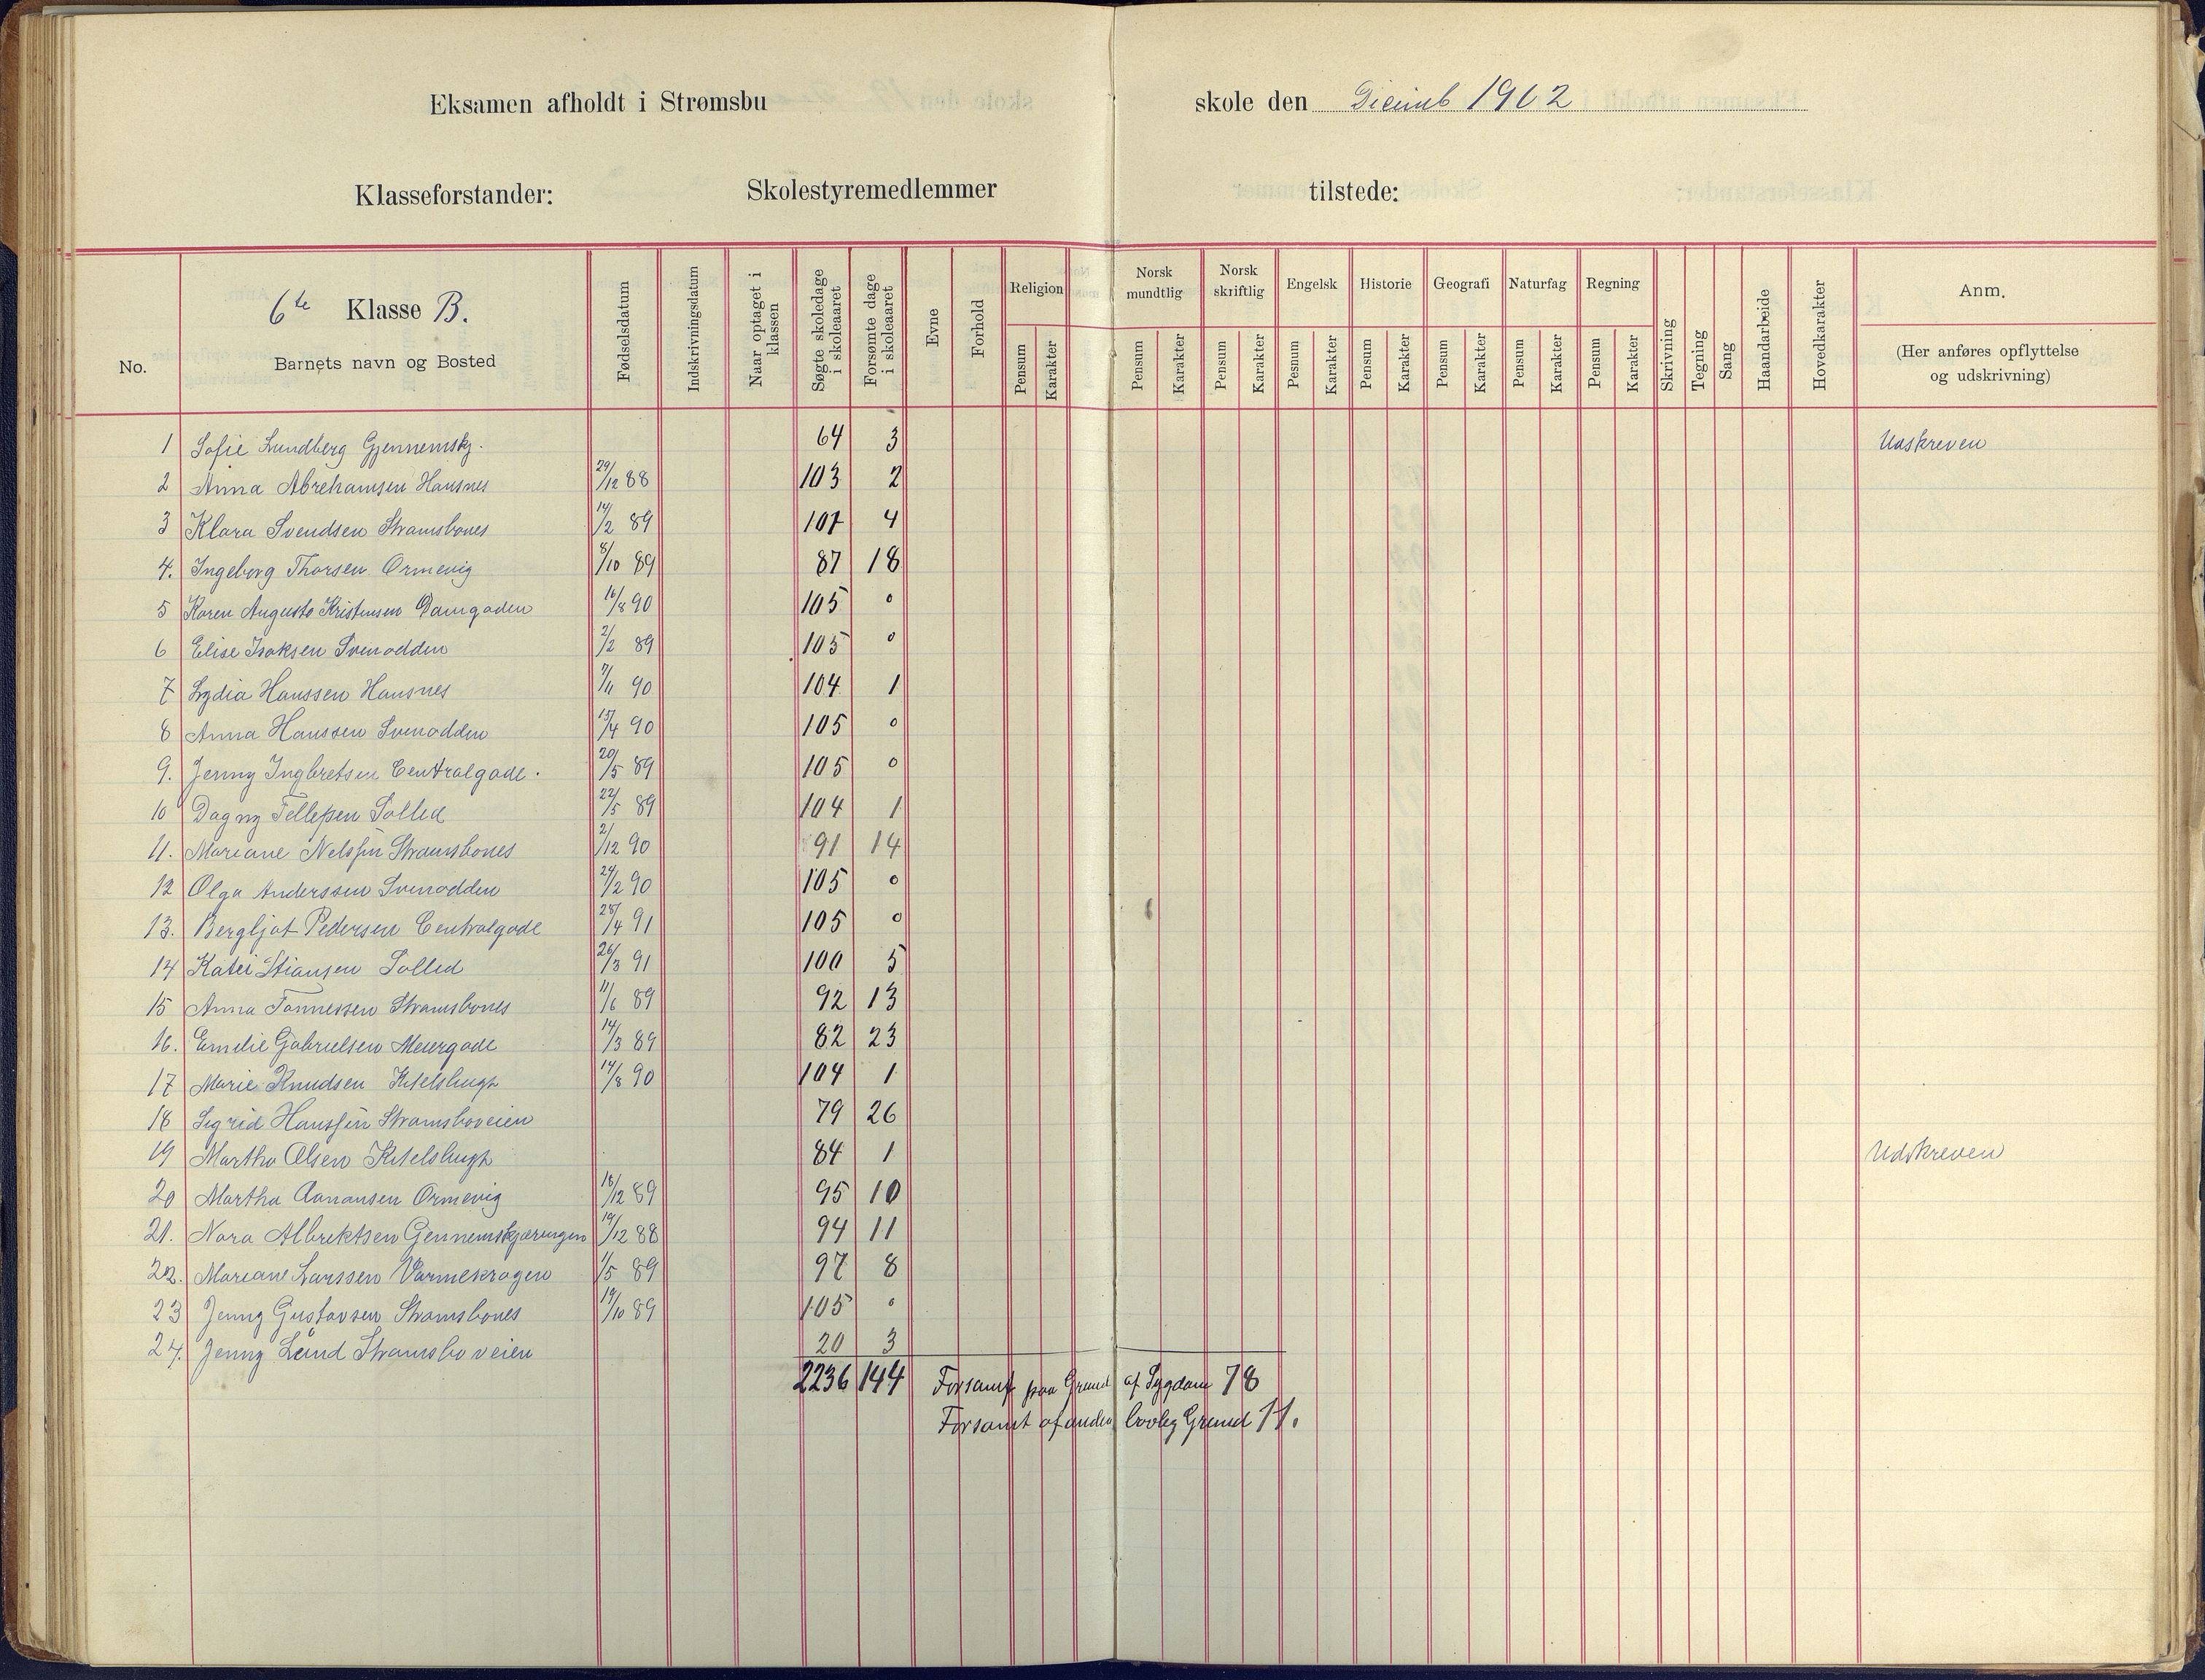 Eksamen afholdt i Strømsbu skole den Decemb 1902
Klasseforstander: Skolestyremedlemmer tilstede:
No. 6te Klasse B. Barnets navn og Bosted Fødselsdatum Indskrivningsdatum Naar optaget i klassen Søgte skoledage i skoleaaret Forsømte dage i skoleaaret Evne Forhold Religion Pensum Karakter Norsk mundtlig Pensum Karakter Norsk skriftlig Pensum Karakter Engelsk Pesnum Karakter Historie Pensum Karakter Geografi Pensum Karakter Naturfag Pensum Karakter Regning Pensum Karakter Skrivning Tegning Sang Haandarbeide Hovedkarakter Anm. (Her anføres opflyttelse og udskrivning)
1 Sofie Lundberg Gjennemskj. 64 3 Udskreven
2 Anna Abrehamsen Hansnes 29/12 88 103 2
3 Klara Svendsen Strømsbones 14/2 89 101 4
4. Ingeborg Thorsen Ormevig 8/10 89 87 18
5 Karen Augusta Kristensen Damgaden 16/8 90 105 0
6 Elise Isaksen Svenodden 2/2 89 105 0
7 Lydia Hanssen Hansnes 7/11 90 104 1
8 Anna Hanssen Svenodden 15/4 90 105 0
9. Jenny Ingbretsen Centralgade. 20/5 89 105 0
10 Dagny Tellefsen Solled 22/5 89 104 1
11. Mariane Nelssen Strømsbones 2/12 90 91 14
12 Olga Anderssen Svenodden 24/2 90 105 0
13. Bergljot Pedersen Centralgade 28/4 91 105 0
14 Katei Stiansen Solled 26/3 91 100 5
15 Anna Tønnessen Strømsbones 11/6 89 92 13
16. Emelie Gabrielsen Meiergade 14/3 89 82 23
17 Marie Knudsen Kitelshugt 14/8 90 104 1
18 Sigrid Hanssen Strømsboveien 79 26
19 Martha Olsen Kitelshugt 84 1 Udskreven
20 Martha Aanonsen Ormevig 18/12 89 95 10
21. Nora Albrektsen Gjennemskjæringen 19/12 88 94 11
22. Mariane Larssen Varmekrogen 1/5 89 97 8
23 Jenny Gustavsen Strømsbones 19/10 89 105 0
24. Jenny Lund Strømsboveien 20 3
2236 144 Forsømt paa Grund af Sygdom 78
Forsømt af anden lovlig Grund 11.